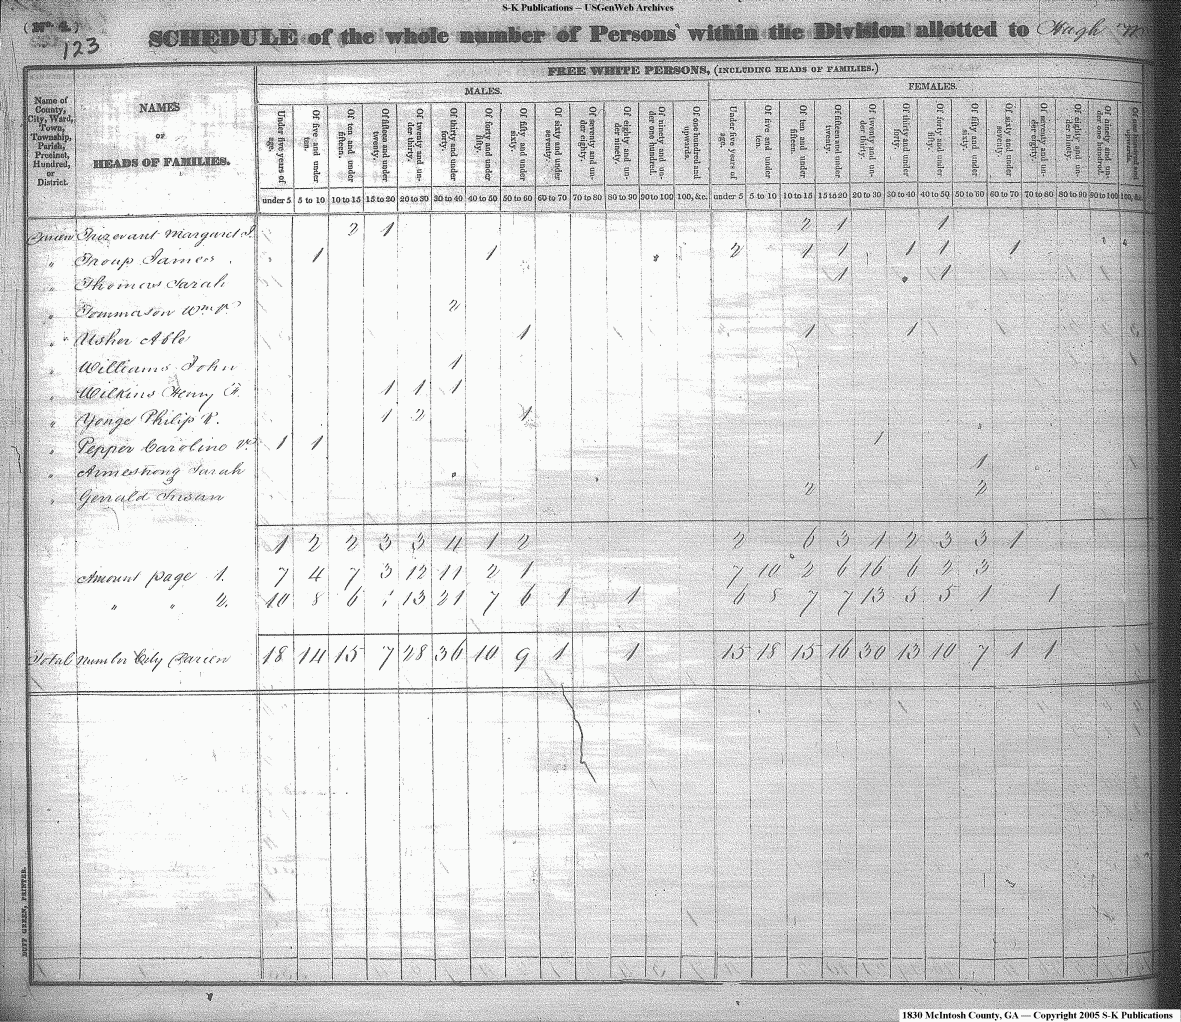 S-K Publications – USGenWeb Archives
(No. 4.)
123
SCHEDULE of the whole number of Persons within the Division allotted to Hugh
FREE WHITE PERSONS, (INCLUDING HEADS OF FAMILIES.)
MALES.
FEMALES.
Name of County, City, Ward, Town, Township, Parish, Precinct, Hundred, or District.
NAMES
OF
HEADS OF FAMILIES.
Under five years of age. Of five and under ten. Of ten and under fifteen. Of fifteen and under twenty. Of twenty and under thirty. Of thirty and under forty. Of forty and under fifty. Of fifty and under sixty. Of sixty and under seventy. Of seventy and under eighty. Of eighty and under ninety. Of ninety and under one hundred. Of one hundred and upwards. Under five years of age. Of five and under ten. Of ten and under fifteen. Of fifteen and under twenty. Of twenty and under thirty. Of thirty and under forty. Of forty and under fifty. Of fifty and under sixty. Of sixty and under seventy. Of seventy and under eighty. Of eighty and under ninety. Of ninety and under one hundred. Of one hundred and upwards.
under 5 5 to 10 10 to 15 15 to 20 20 to 30 30 to 40 40 to 50 50 to 60 60 to 70 70 to 80 80 to 90 90 to 100 100, &c. under 5 5 to 10 10 to 15 15 to 20 20 to 30 30 to 40 40 to 50 50 to 60 60 to 70 70 to 80 80 to 90 90 to 100 100, &c.
Darien Trezevant Margaret 2 1 2 1 1
" Troup James 1 1 2 1 1 1 1 1
" Thomas Sarah 1 1
" Tommason Wm P. 2
" Usher Able 1 1 1
" Williams John 1
" Wilkins Henry 1 1 1
" Yonge Philip R. 1 2 1
" Pepper Caroline 1 1 1
" Armestrong Sarah 1
" Gerrald Susan 2 2
1 2 2 3 3 4 1 2 2 6 3 1 2 3 3 1
Amount page 1. 7 4 7 3 12 11 2 1 7 10 2 6 16 6 2 3
" " 2. 10 8 6 1 13 21 7 6 1 1 6 8 7 7 13 5 5 1 1
Total Number City Darien 18 14 15 7 28 36 10 9 1 1 15 18 15 16 30 13 10 7 1 1
DUFF GREEN, PRINTER.
1830 McIntosh County, GA — Copyright 2005 S-K Publications